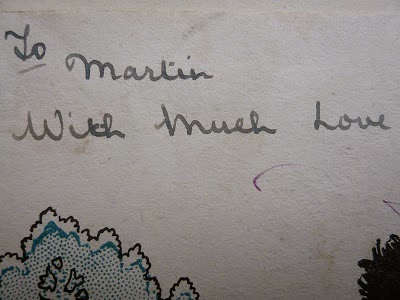 To
Martin
With Much Love